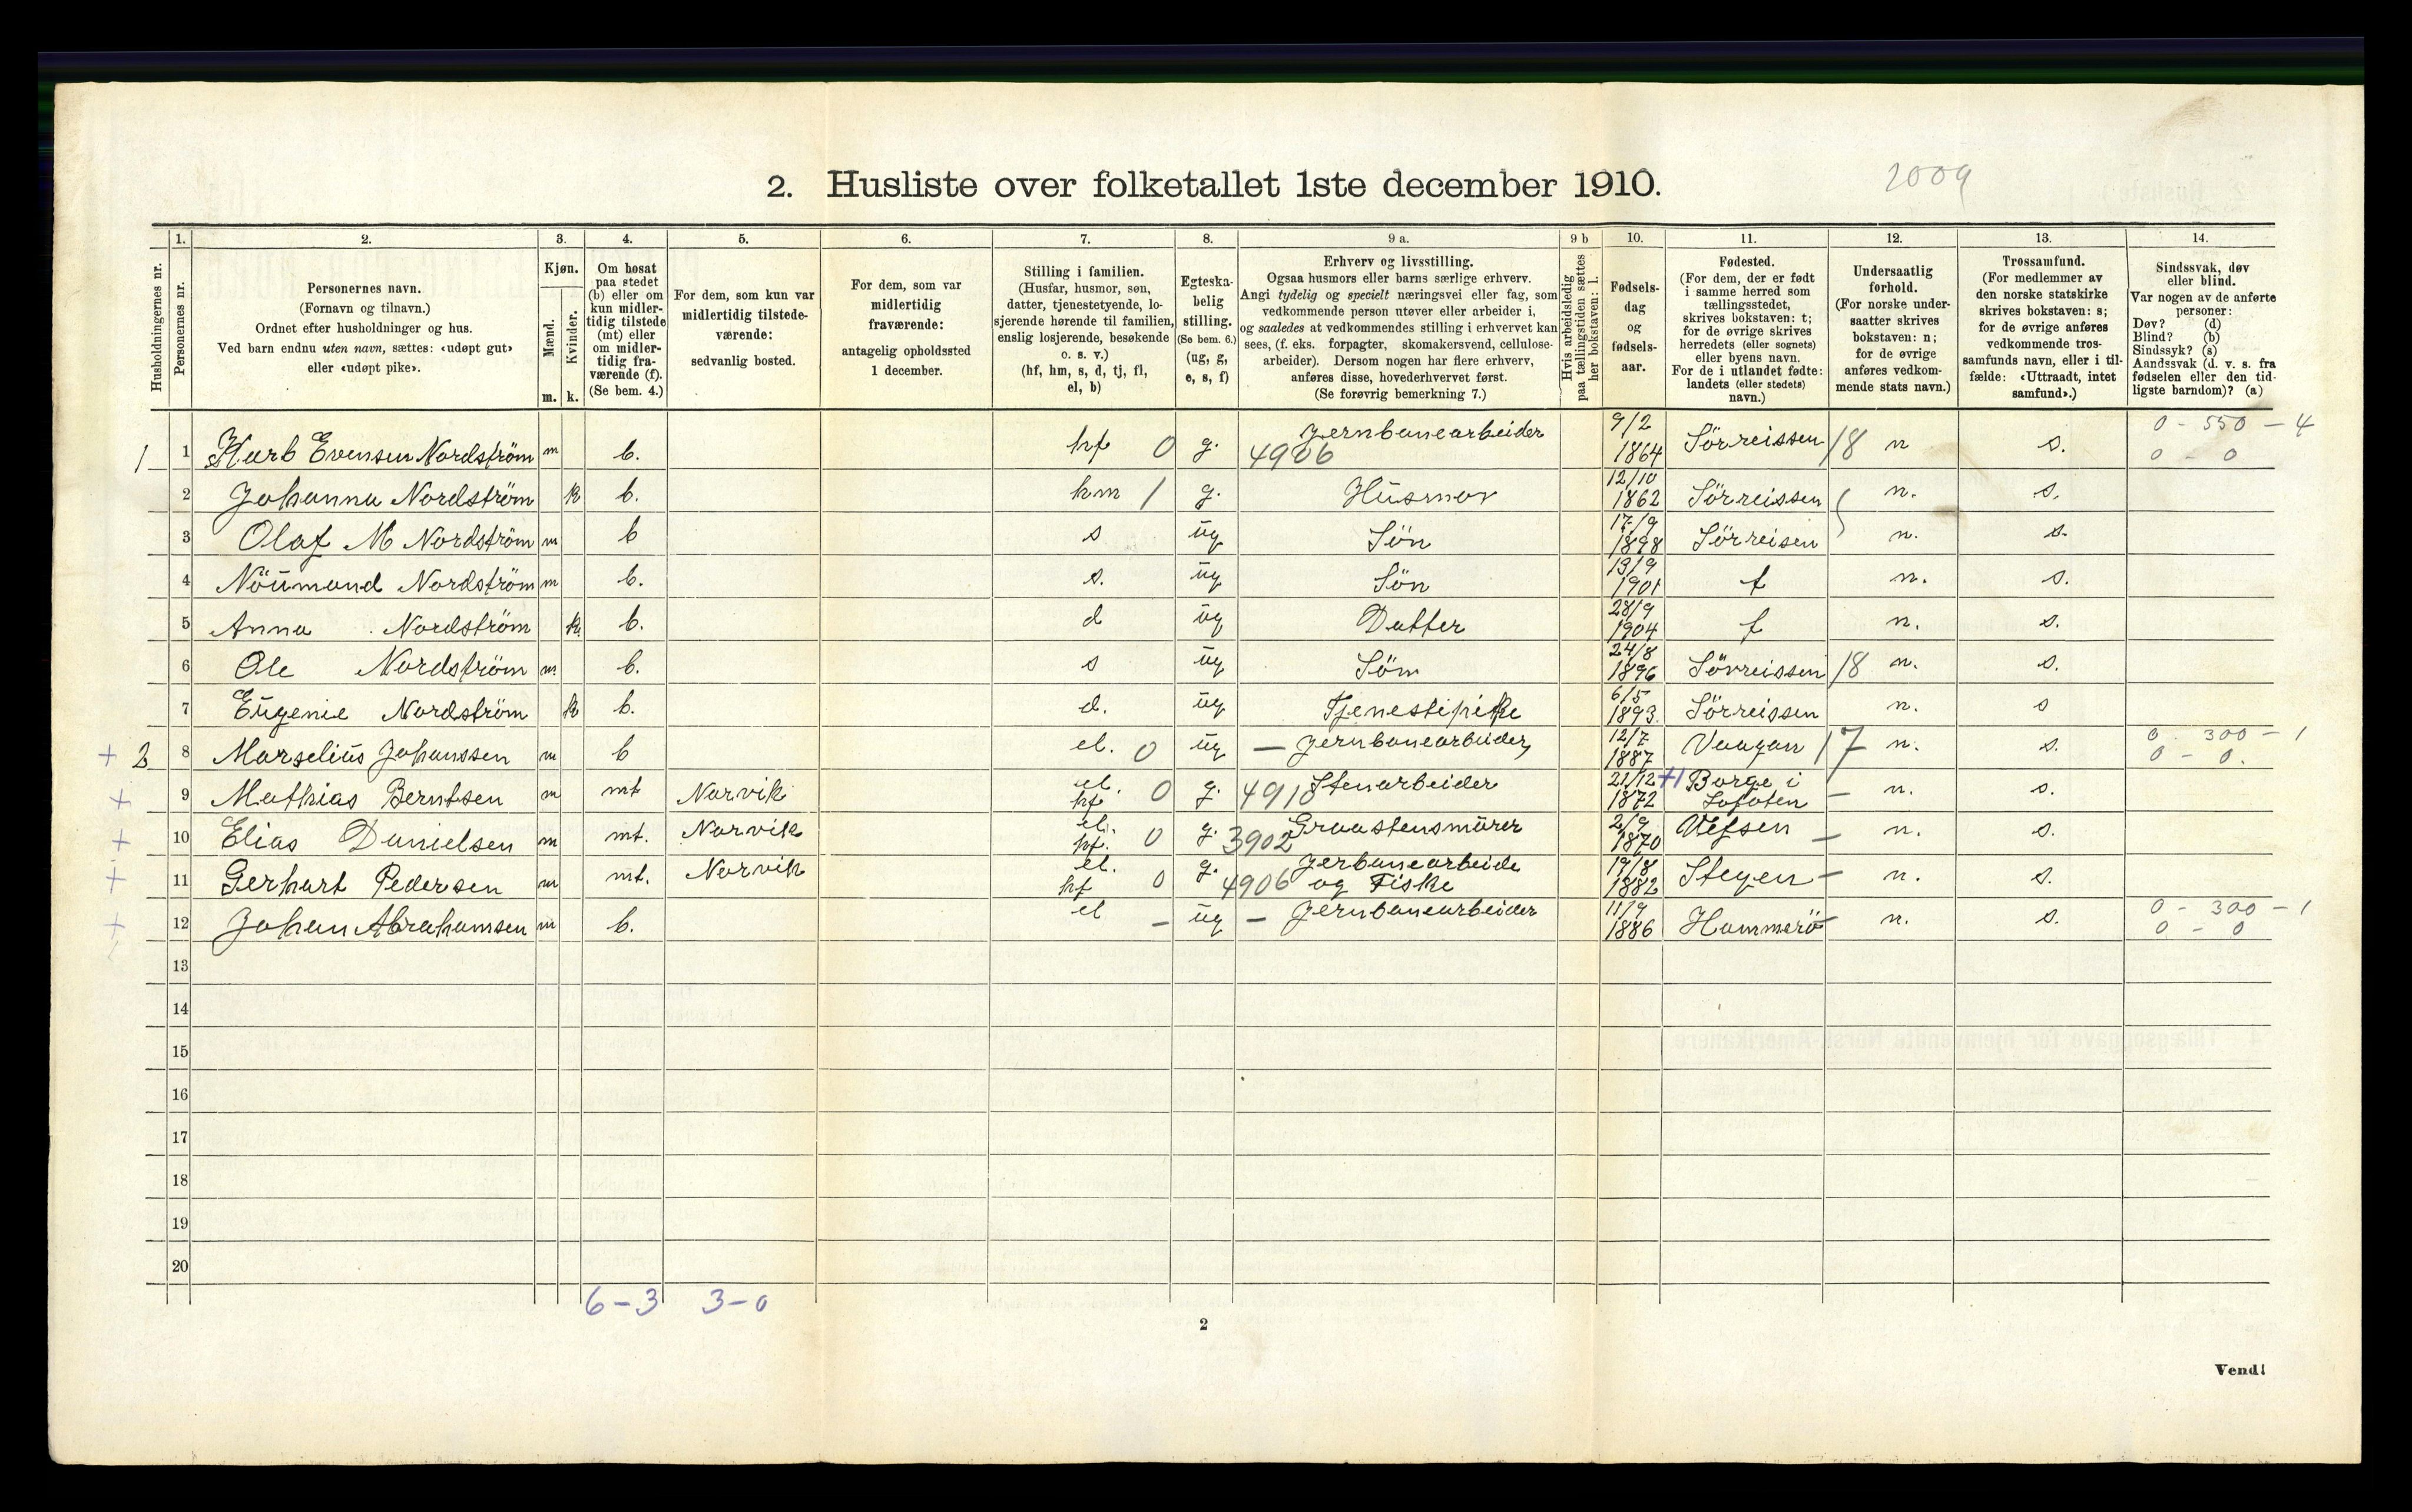 2. Husliste over folketallet 1ste december 1910.
2009
Husholdningernes nr.
1.
Personernes nr.
2.
Personernes navn.
(Fornavn og tilnavn.)
Ordnet efter husholdninger og hus.
Ved barn endnu uten navn, sættes: «udøpt gut»
eller «udøpt pike».
3.
Kjøn.
Mænd.
Kvinder.
m. k.
4.
Om bosat
paa stedet
(b) eller om
kun midler-
tidig tilstede
(mt) eller
om midler-
tidig fra-
værende (f).
(Se bem. 4.)
5.
For dem, som kun var
midlertidig tilstede-
værende:
sedvanlig bosted.
6.
For dem, som var
midlertidig
fraværende:
antagelig opholdssted
1 december.
7.
Stilling i familien.
(Husfar, husmor, søn,
datter, tjenestetyende, lo-
sjerende hørende til familien,
enslig losjerende, besøkende
o. s. v.)
(hf, hm, s, d, tj, fl,
el, b)
8.
Egteska-
belig
stilling.
(Se bem. 6.)
(ug, g,
e, s, f)
9 a.
Erhverv og livsstilling.
Ogsaa husmors eller barns særlige erhverv.
Angi tydelig og specielt næringsvei eller fag, som
vedkommende person utøver eller arbeider i,
og saaledes at vedkommendes stilling i erhvervet kan
sees, (f. eks. forpagter, skomakersvend, cellulose-
arbeider). Dersom nogen har flere erhverv,
anføres disse, hovederhvervet først.
(Se forøvrig bemerkning 7.)
9 b
Hvis arbeidsledig
paa tællingstiden sættes
her bokstaven: l.
10.
Fødsels-
dag
og
fødsels-
aar.
11.
Fødested.
(For dem, der er født
i samme herred som
tællingsstedet,
skrives bokstaven: t;
for de øvrige skrives
herredets (eller sognets)
eller byens navn.
For de i utlandet fødte:
landets (eller stedets)
navn.)
12.
Undersaatlig
forhold.
(For norske under-
saatter skrives
bokstaven: n;
for de øvrige
anføres vedkom-
mende stats navn.)
13.
Trossamfund.
(For medlemmer av
den norske statskirke
skrives bokstaven: s;
for de øvrige anføres
vedkommende tros-
samfunds navn, eller i til-
fælde: «Uttraadt, intet
samfund».)
14.
Sindssvak, døv
eller blind.
Var nogen av de anførte
personer:
Døv? (d)
Blind? (b)
Sindssyk? (s)
Aandssvak (d. v. s. fra
fødselen eller den tid-
ligste barndom)? (a)
1 1 Evensen Nordström m b. hf 0 g. Jernbanearbeider 4906 9/2 1864 Sörreissen 18 n s. 0 - 550 - 4 0 - 0
2 Johanna Nordström k b. hm 1 g. Husmor 12/10 1862 Sörreissen n. s.
3 Olaf M Nordström m b s ug Sön 17/9 1898 Sörreisen n. s.
4 Nordström m b. s. ug Sön 13/9 1901 t n. s.
5 Anna Nordström k. b. d ug Datter 28/9 1904 t n. s.
6 Ole Nordström m. b. s ug Sön 24/8 1896 Sörreissen 18 n. s.
7 Eugenie Nordström k b. d. ug Tjenestipike 6/5 1893. Sörreissen n. s
+ 2 8 Marselius Johanssen m b el. 0 ug - Jernbanearbeider 12/7 1887 Vaagan 17 n. s. 0 - 300 - 1 0 - 0.
+ 9 Mathias Berntsen m mt Narvik el. hf 0 g. 4910 Stenarbeider 21/12 1872 +1 Borge i Lofoten - n. s.
+ 10 Elias Danielsen m mt. Narvik el. hf. 0 g. 3902 Graastensmürer 2/9 1870 Vefsen - n. s.
+ 11 Gerhart Pedersen m mt. Narvik el. hf 0 g. 4906 Jerbanearbeide og Fiske 19/8 1882 Stegen - n. s.
+ 12 Johan Abrahamsen m b. el - ug - Jernbanearbeider 11/9 1886 Hammerö - n. s. 0 - 300 - 1 0 - 0
13
14
15
16
17
18
19
20
6-3 3-0
2
Vend!